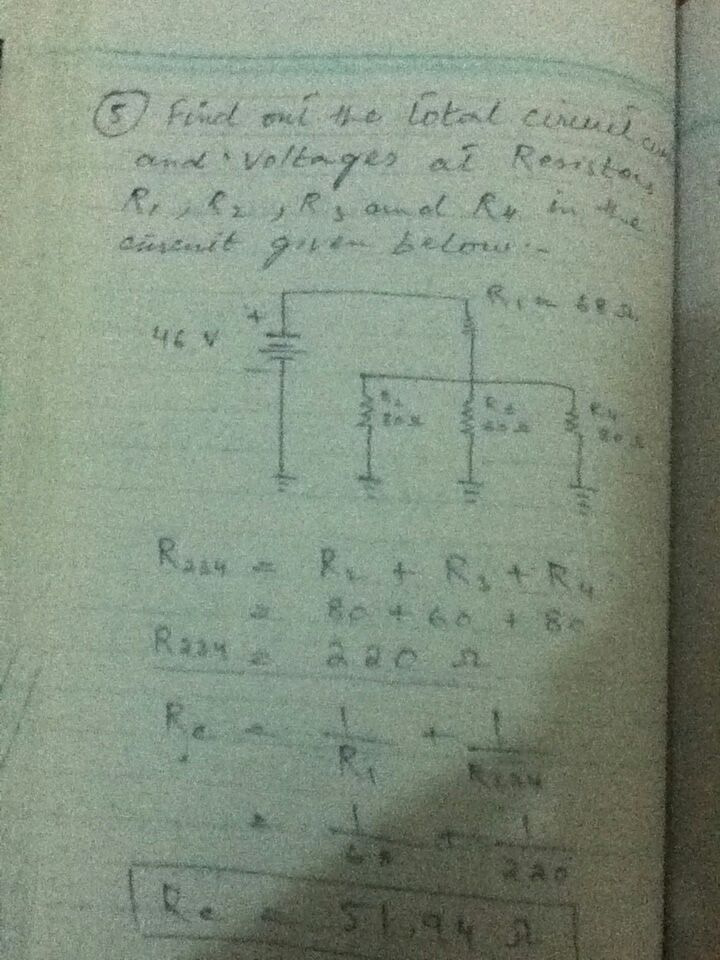 5 Find out the total circuit
and voltages at Resistors
R1, R2, R3 and R4 in the
circuit given below:-
R1 = 68 Ω
+
46 V
-
80 Ω
60 Ω
R4
80 Ω
R234 = R2 + R3 + R4
= 80 + 60 + 80
R234 = 220 Ω
Re = 1/R1 + 1/R234
= 1/68 + 1/220
Re = 51.94 Ω